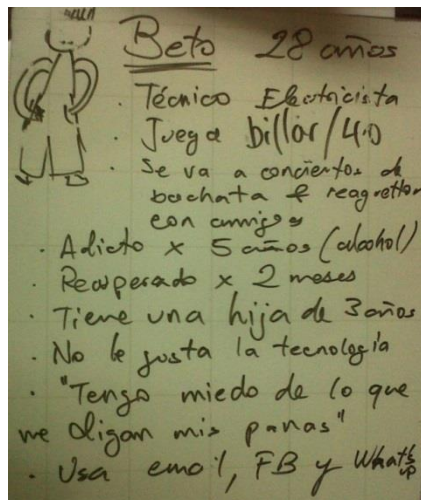 Beto 28 años
· Técnico Electricista
· Juega billar/40
· Se va a conciertos de
bachata & reagretton
con amigos
· Adicto x 5 años (alcohol)
· Recuperado x 2 meses
· Tiene una hija de 3 años
· No le gusta la tecnología
· "Tengo miedo de lo que
me digan mis panas"
· Usa email, FB y What's